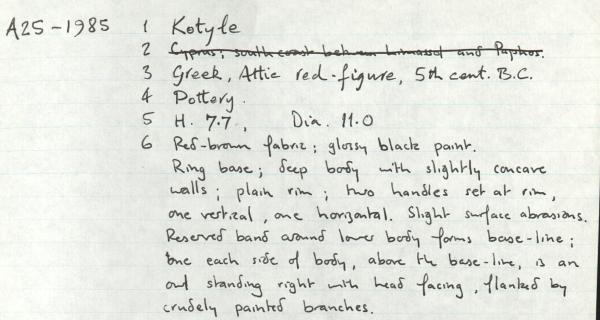 A25-1985 1 Kotyle
2 Cyprus; south coast between Limassol and Paphos.
3 Greek, Attic red-figure, 5th cent. B.C.
4 Pottery.
5 H. 7.7, Dia. 11.0
6 Red-brown fabric; glossy black paint.
Ring base; deep body with slightly concave
walls; plain rim; two handles set at rim,
one vertical, one horizontal. Slight surface abrasions.
Reserved band around lower body forms base-line;
one each side of body, above the base-line, is an
owl standing right with head facing, flanked by
crudely painted branches.